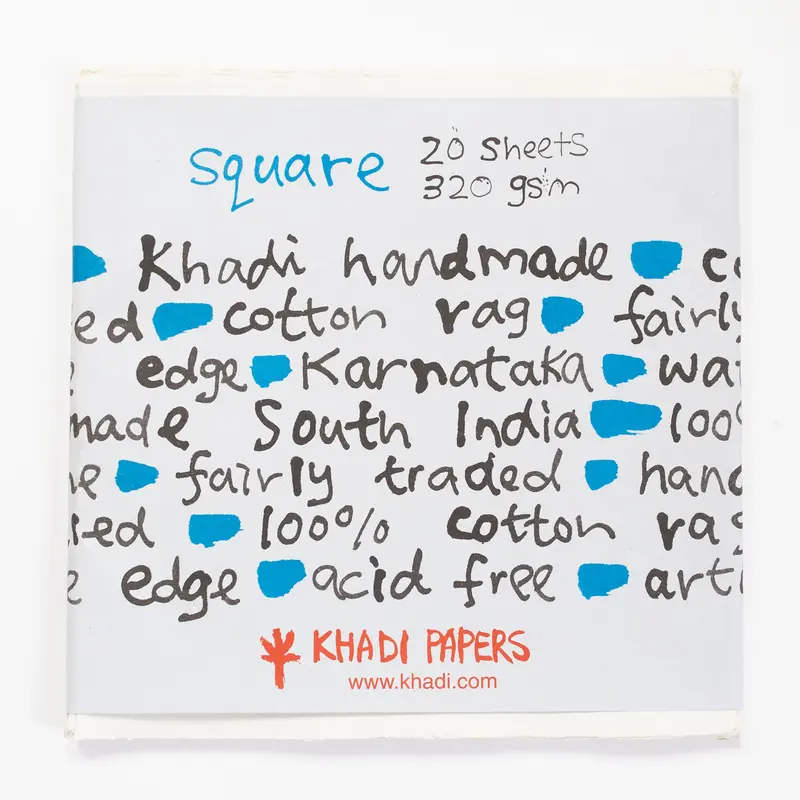 square
20 sheets
320 gsm
Khadi handmade
ed cotton rag fairly
edge Karnataka
made South India 100
fairly traded
100% cotton
edge acid free
KHADI PAPERS
www.khadi.com